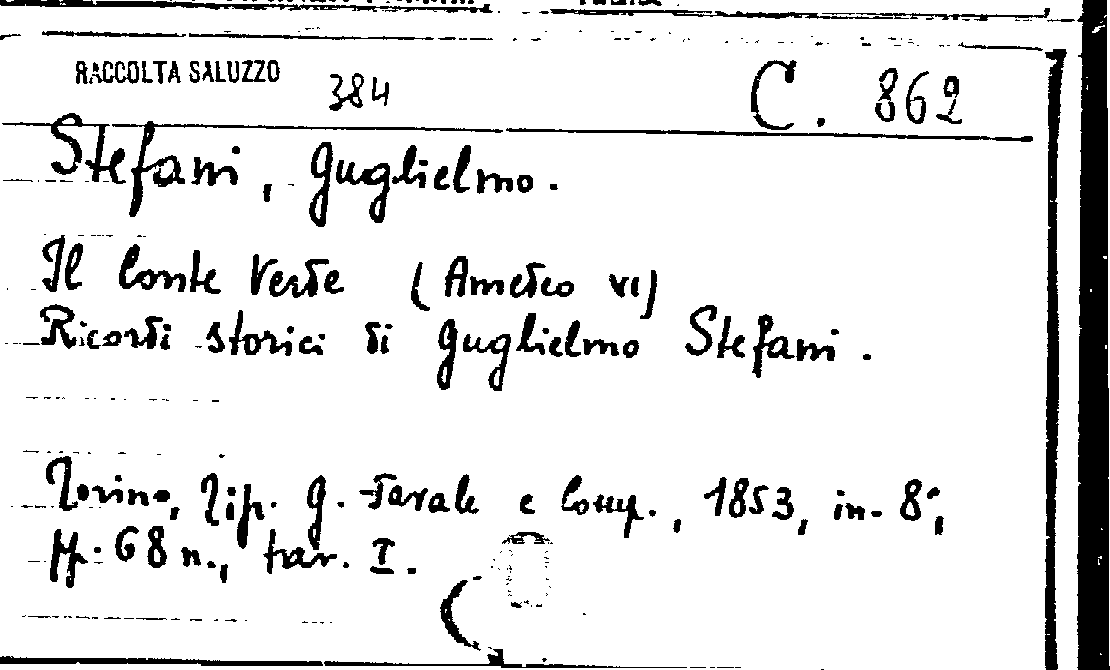 RACCOLTA SALUZZO 384 C. 862
Stefani, Guglielmo.
Il Conte Verde (Amedeo VI)
Ricordi storici di Guglielmo Stefani.
Torino, Tip. G. Favale e Comp., 1853, in-8°,
pp. 68 n., tav. I.